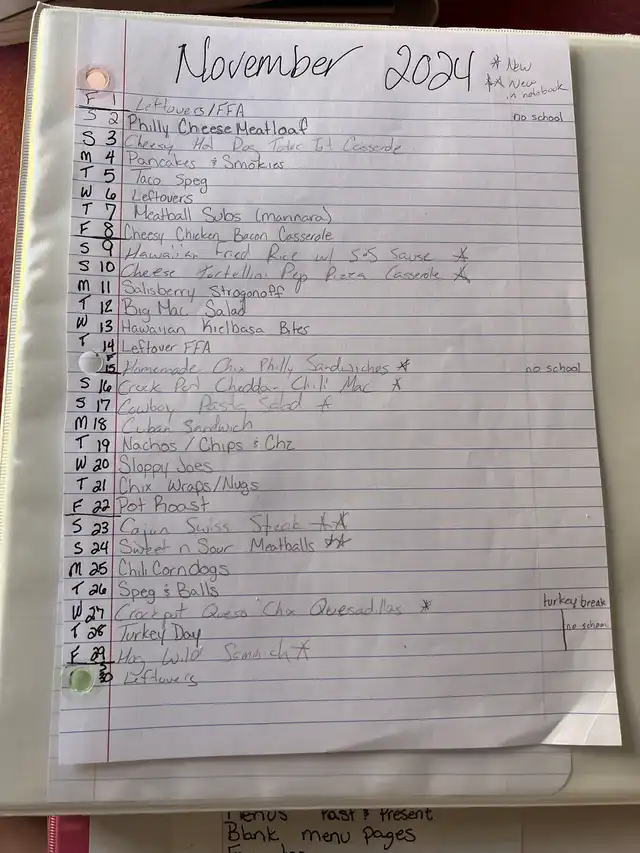 November 2024
* New
** New in notebook
F 1 Leftovers/FFA
S 2 Philly Cheese Meatloaf no school
S 3 Cheesy Hot Dog Tater Tot Casserole
M 4 Pancakes & Smokies
T 5 Taco Speg
W 6 Leftovers
T 7 Meatball Subs (mannara)
F 8 Cheesy Chicken Bacon Casserole
S 9 Hawaiian Fried Rice w/ Sauce *
S 10 Cheese Tortellini Pep Pizza Casserole *
M 11 Salisberry Strogonoff
T 12 Big Mac Salad
W 13 Hawaiian Kielbasa Bites
T 14 Leftover FFA
F 15 Homemade Chix Philly Sandwiches * no school
S 16 Crock Pot Cheddar Chili Mac *
S 17 Cowboy Pasta Salad *
M 18 Cuban Sandwich
T 19 Nachos / Chips & Chz
W 20 Sloppy Joes
T 21 Chix Wraps/Nugs
F 22 Pot Roast
S 23 Cajun Swiss Steak **
S 24 Sweet n Sour Meatballs **
M 25 Chili Corndogs
T 26 Speg & Balls
W 27 Crockpot Queso Chix Quesadillas * turkey break
T 28 Turkey Day no school
F 29 Hog Wild Sammich *
S 30 Leftovers
Menus Past & Present
Blank menu pages